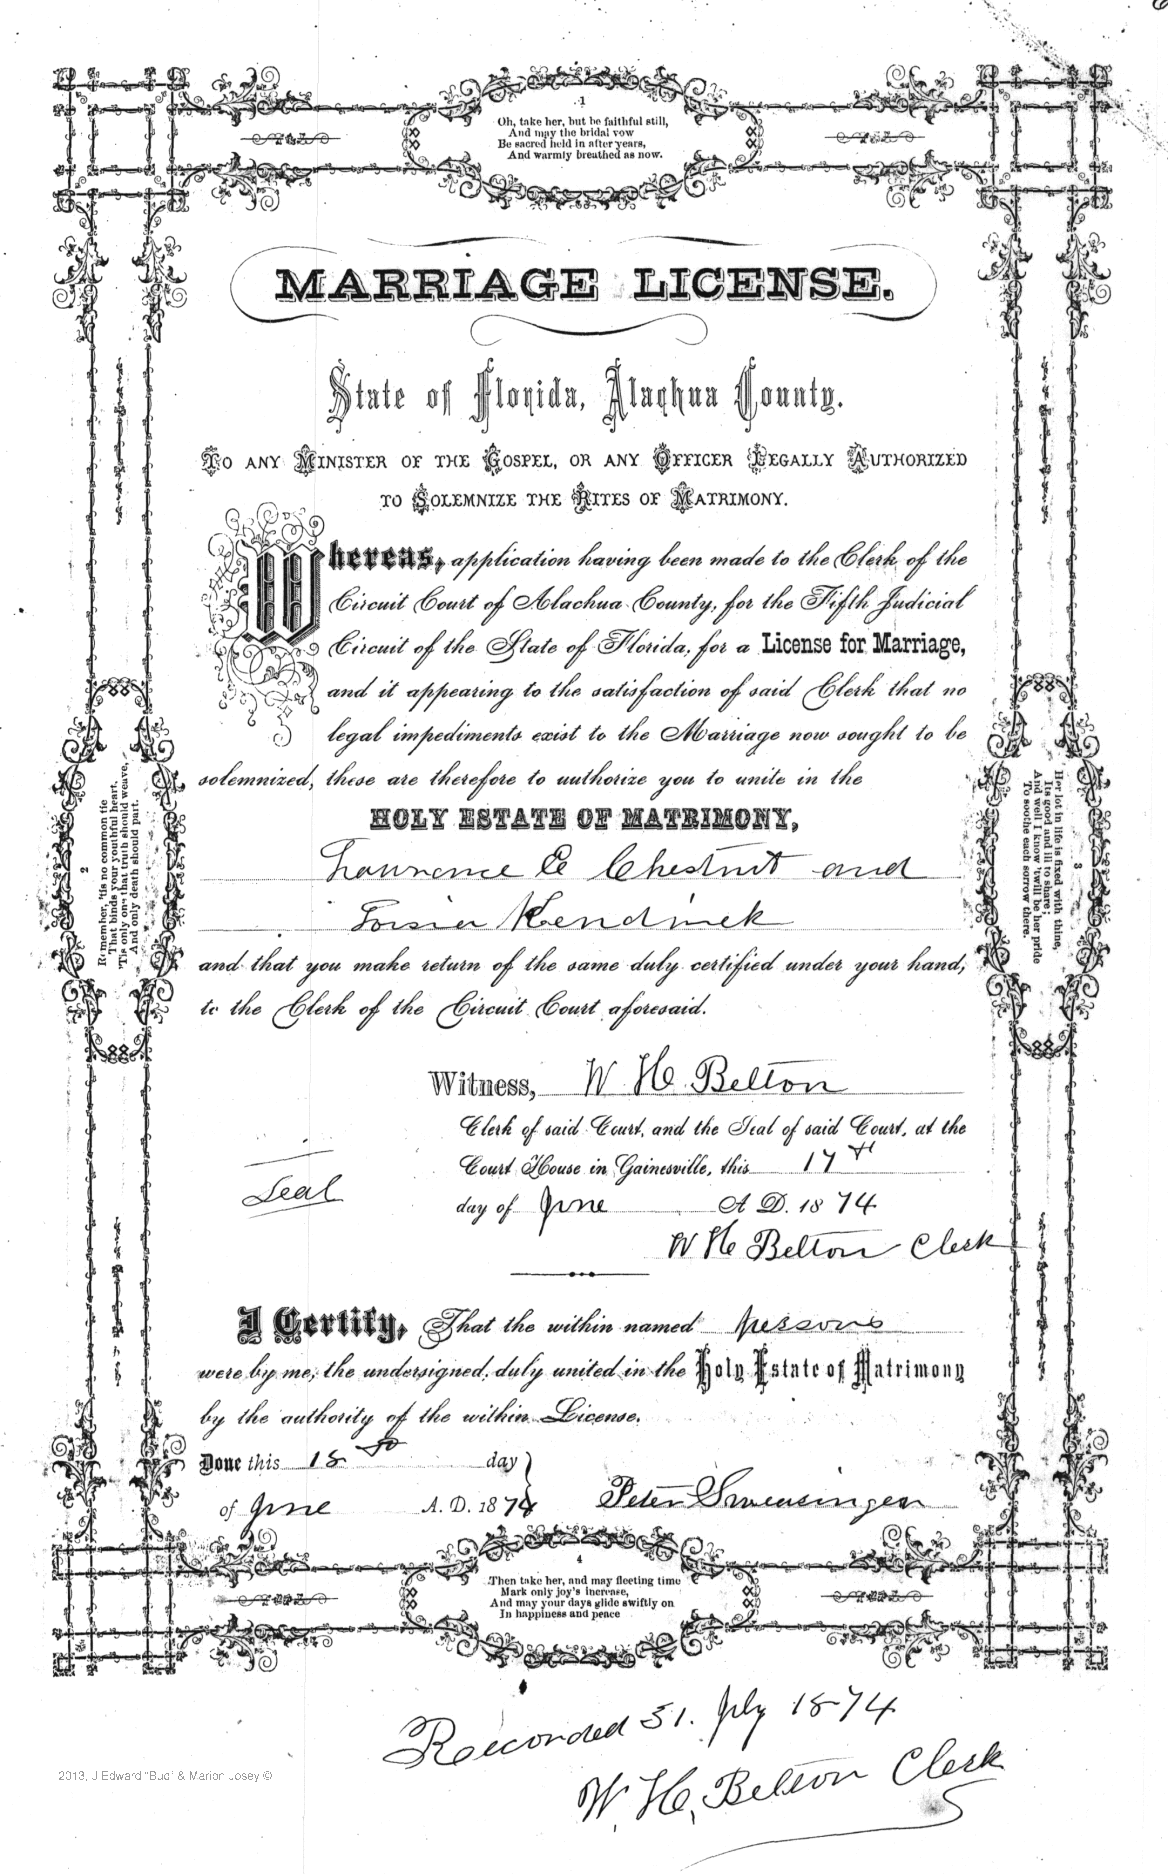 1
Oh, take her, but be faithful still,
And may the bridal vow
Be sacred held in after years,
And warmly breathed as now.
MARRIAGE LICENSE.
State of Florida, Alachua County.
TO ANY MINISTER OF THE GOSPEL, OR ANY OFFICER LEGALLY AUTHORIZED
TO SOLEMNIZE THE RITES OF MATRIMONY.
Whereas, application having been made to the Clerk of the
Circuit Court of Alachua County, for the Fifth Judicial
Circuit of the State of Florida, for a License for Marriage,
and it appearing to the satisfaction of said Clerk that no
legal impediments exist to the Marriage now sought to be
solemnized, these are therefore to authorize you to unite in the
HOLY ESTATE OF MATRIMONY,
Lawrence C Chestnut and
Kendrick
and that you make return of the same duly certified under your hand,
to the Clerk of the Circuit Court aforesaid.
2
Remember, 'tis no common tie
That binds your youthful heart,
'Tis only one that truth should weave,
And only death should part.
3
Her lot in life is fixed with thine,
Its good and ill to share
And well I know 'twill be her pride
To soothe each sorrow there.
Witness, W. H. Belton
Clerk of said Court, and the Seal of said Court, at the
Court House in Gainesville, this 17th
Seal
day of June A D. 1874
W H Belton Clerk
I Certify, That the within named persons
were by me, the undersigned, duly united in the Holy Estate of Matrimony
by the authority of the within License.
Done this 18th day
of June A. D. 1874 Peter Sweasingen
4
Then take her, and may fleeting time
Mark only joy's increase,
And may your days glide swiftly on
In happiness and peace
Recorded 31. July 1874
W. H. Belton Clerk
2013, J Edward "Bud" & Marion Josey ©